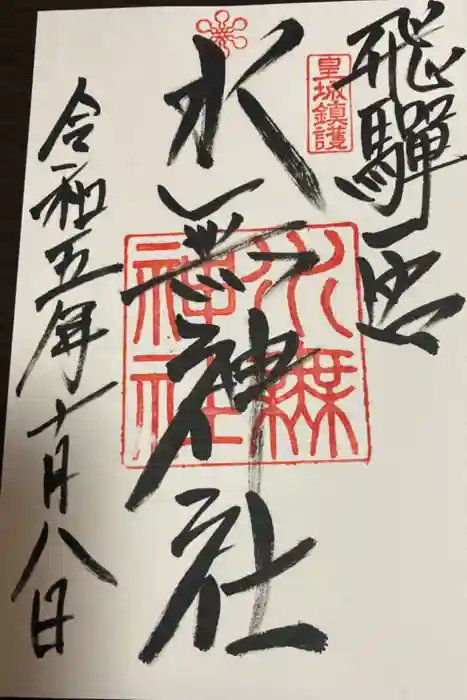 飛驒一宮
皇城鎮護
水無神社
水無
神社
令和五年十月八日